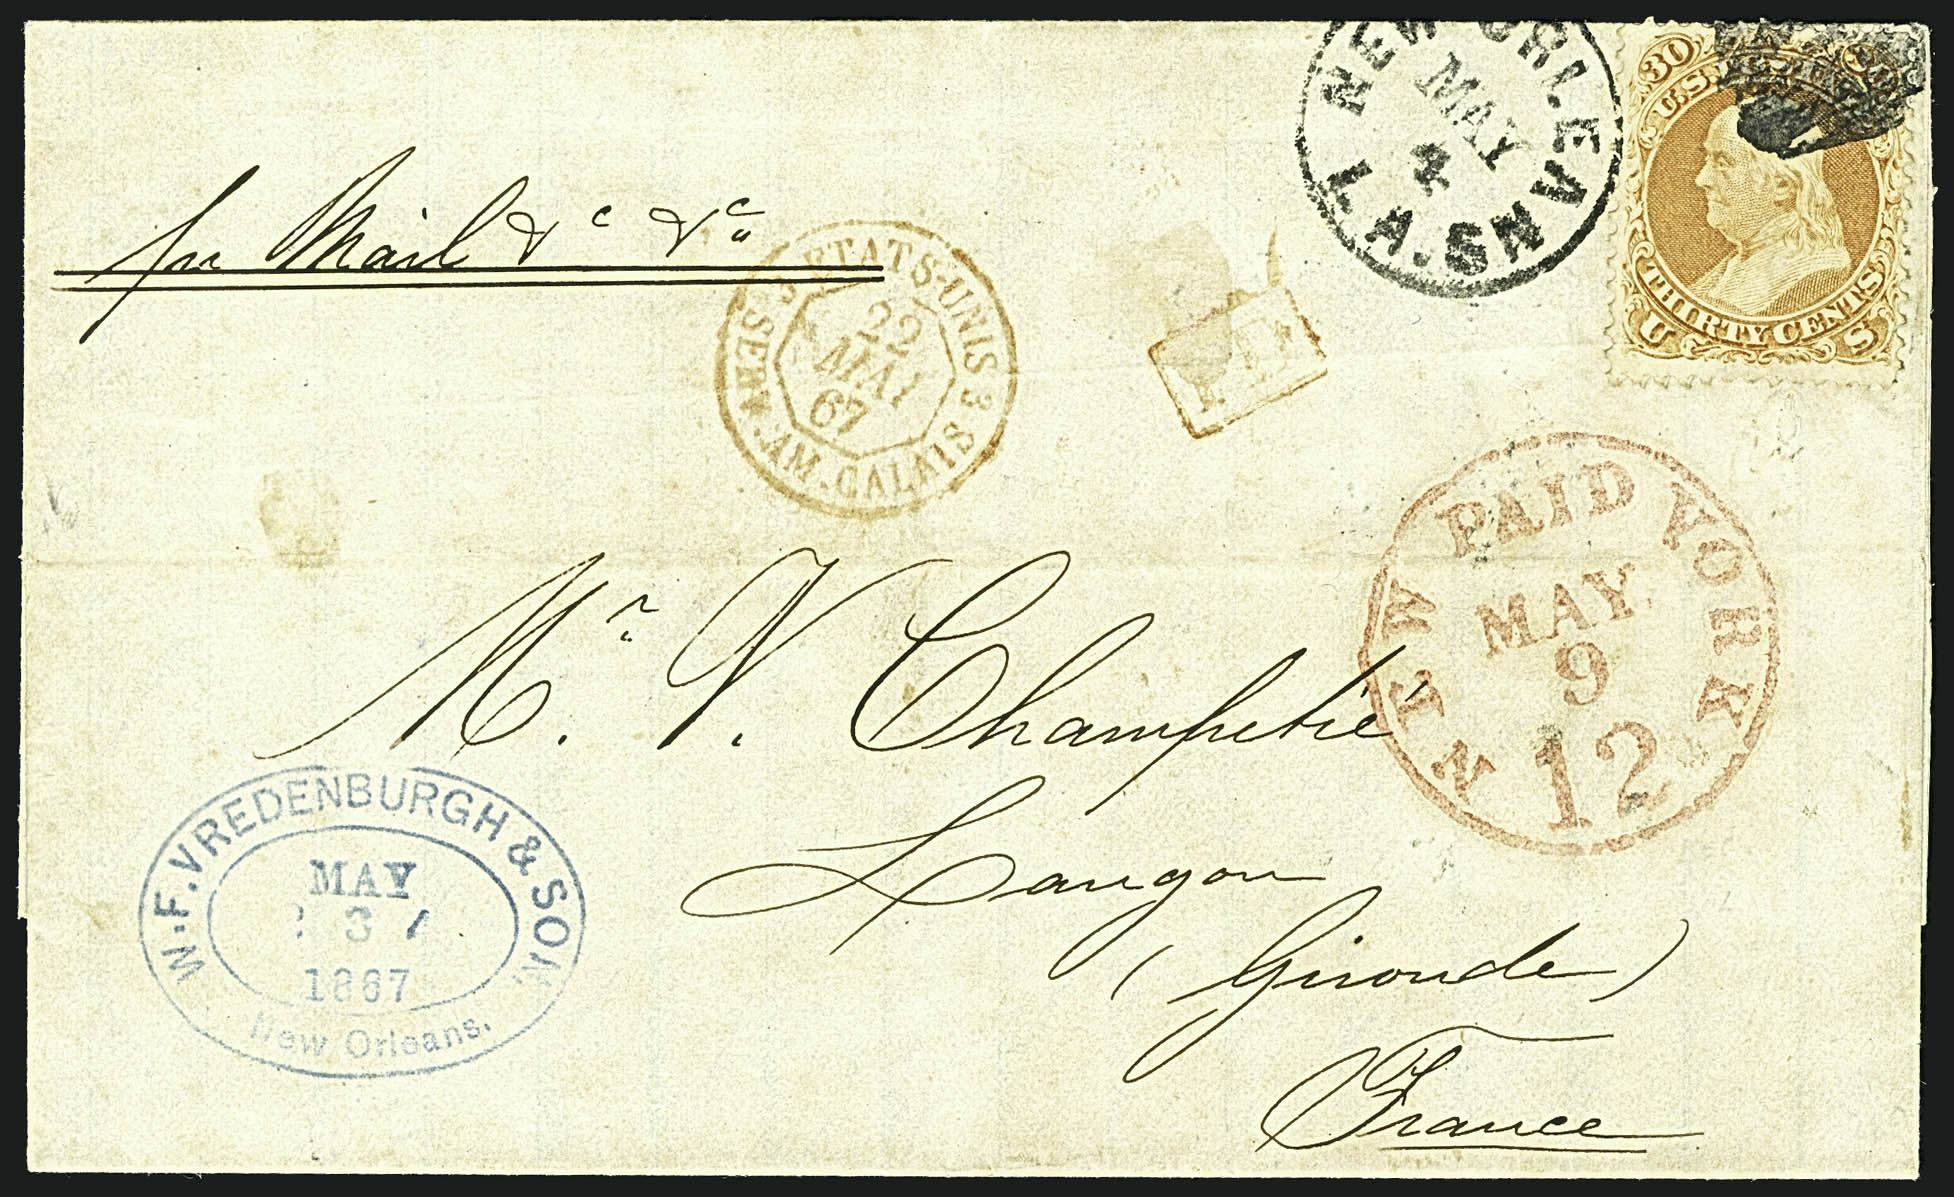 NEW ORLEANS. LA.
MAY
4
30
U.S.
THIRTY CENTS
U S
per Mail &c &c
3 ETATS-UNIS 3
SERV. AM. CALAIS
22
MAI
67
PD
NEW PAID YORK
MAY
9
12
Mr. V. Champetié
Langon
(Gironde)
France
W. F. VREDENBURGH & SON
MAY
3
1867
New Orleans.